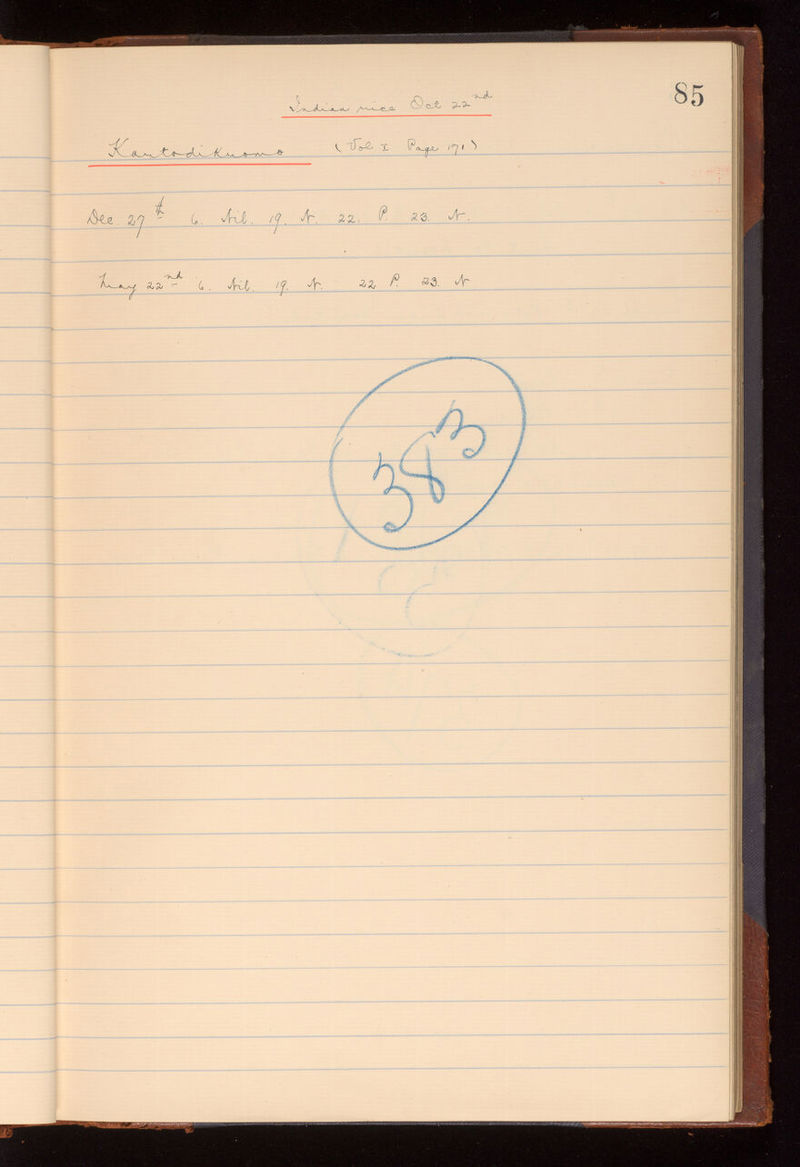 85
Indian rice Oct 22nd
Kartodikromo (Vol X Page 171)
Dec. 27th 6. Nil. 19. N. 22. P. 23. N.
May 22nd 6. Nil. 19. N. 22 P. 23. N
383